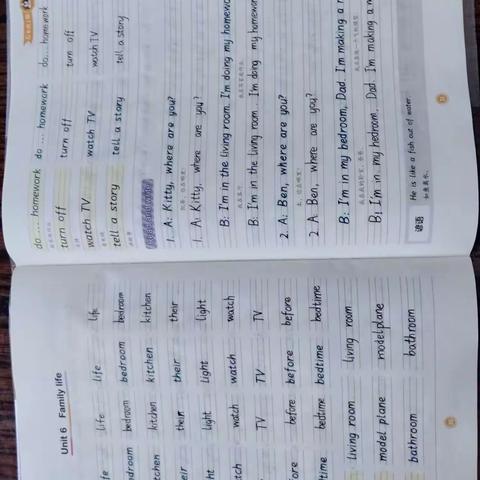 Unit 6 Family life
life life life
bedroom bedroom bedroom
kitchen kitchen kitchen
their their their
light light light
watch watch watch
TV TV TV
before before before
bedtime bedtime bedtime
living room living room
model plane modelplane
bathroom bathroom
do ... homework do ... homework do... homework
turn off turn off turn off
watch TV watch TV watch TV
tell a story tell a story tell a story
1. A: Kitty, where are you?
1. A: Kitty, where are you?
B: I'm in the living room. I'm doing my homework
B: I'm in the living room. I'm doing my homework
2. A: Ben, where are you?
2. A: Ben, where are you?
B: I'm in my bedroom, Dad. I'm making a
B: I'm in my bedroom, Dad. I'm making a
谚语
He is like a fish out of water.
如鱼离水。